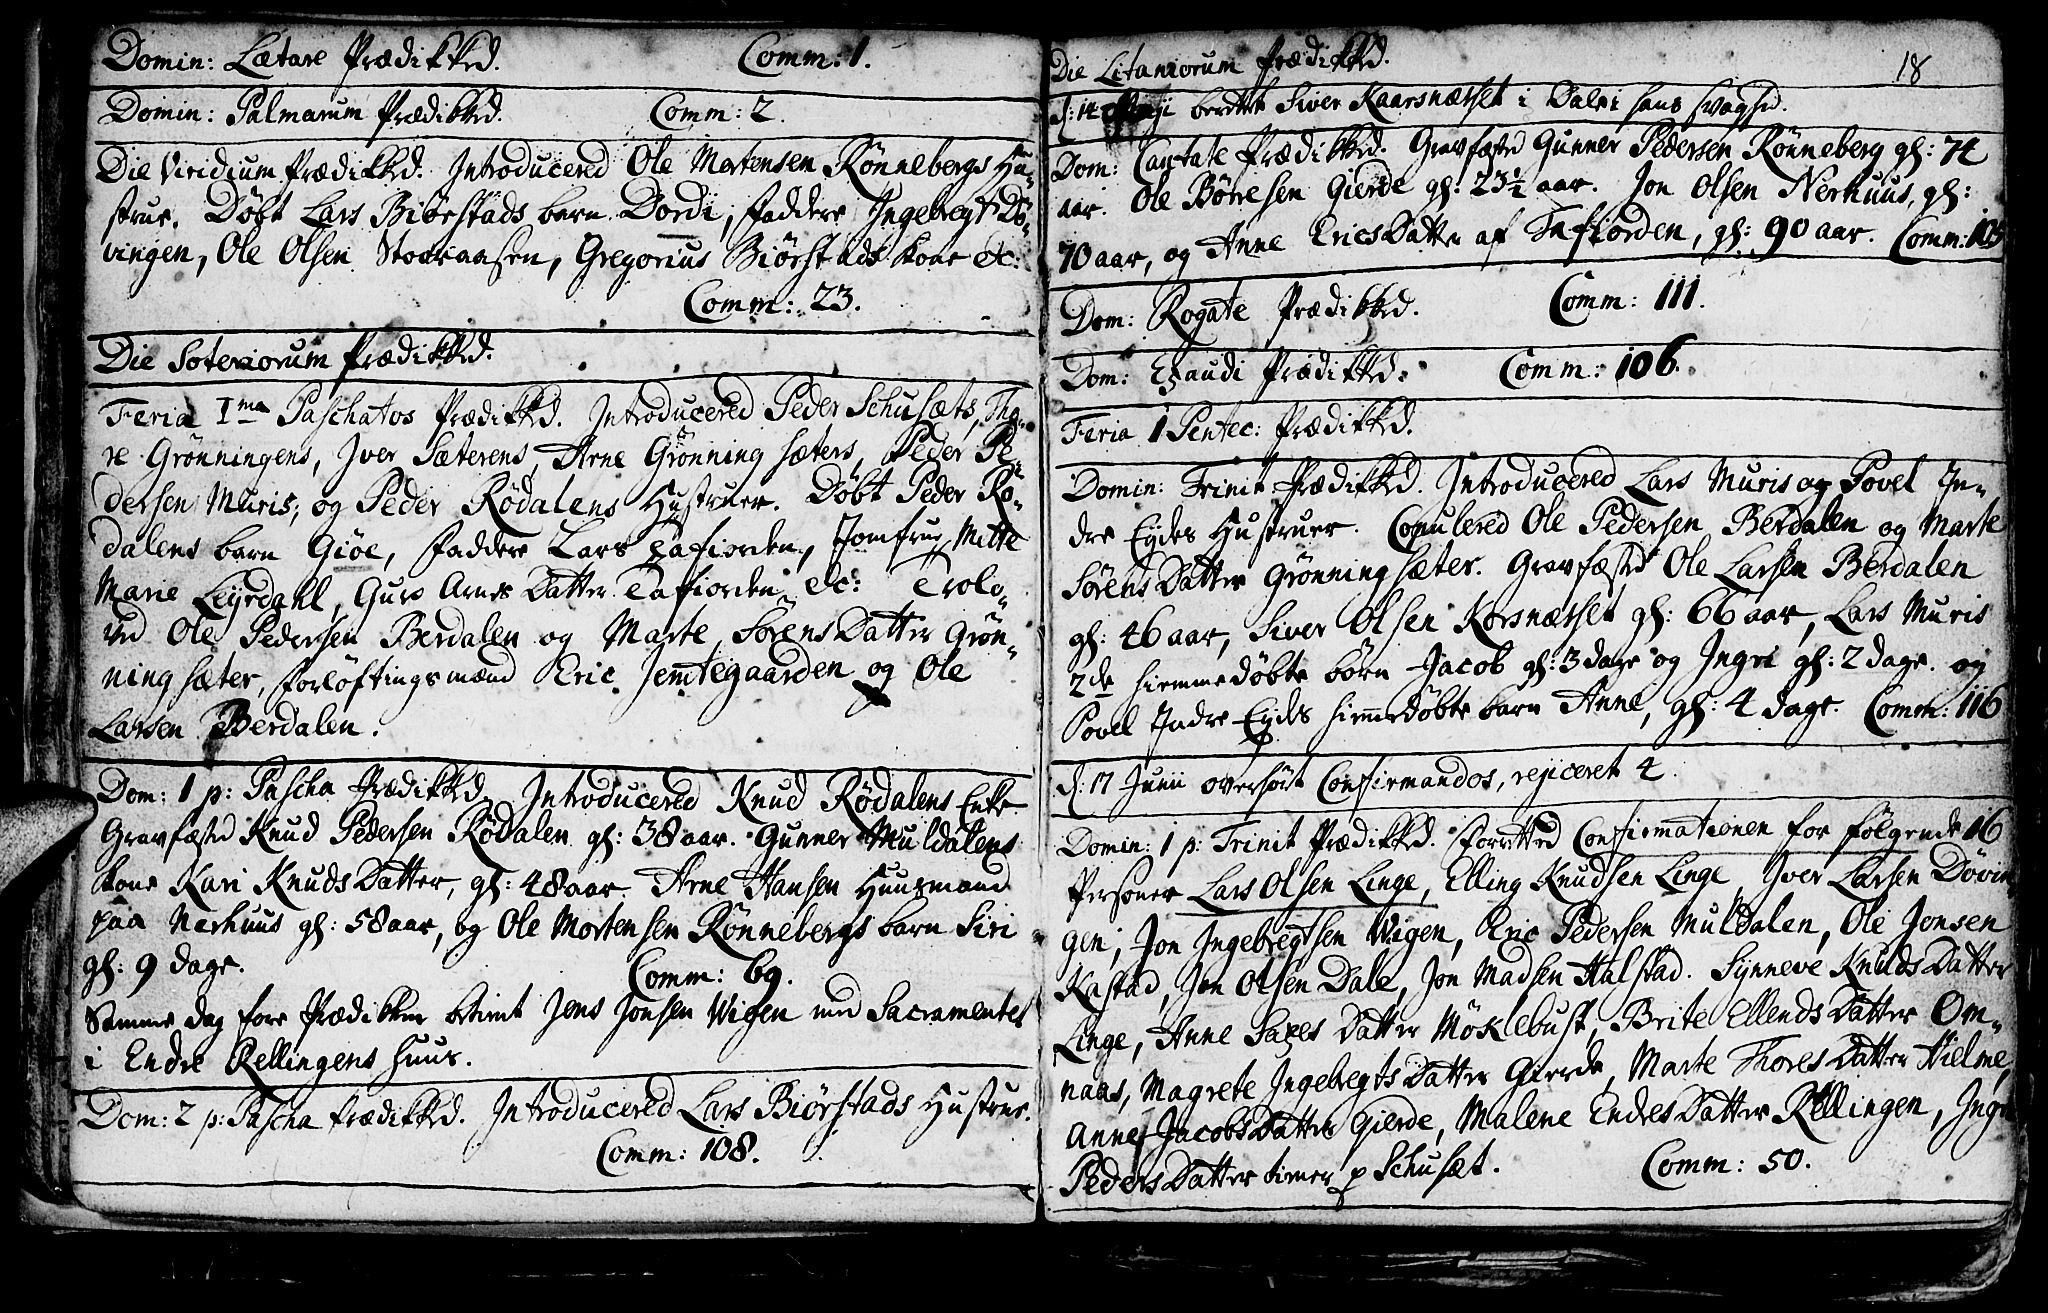 Domin: Lætare Prædikked. Comm: 1.
Domin: Palmarum Prædikked. Comm: 2.
Die Viridium Prædikked. Introducered Ole Mortensen Rönnebergs Hu-
strue. Döbt Lars Biörstads barn Dordi, faddere Ingebregt Dö-
vingen, Ole Olsen Storaasen, Gregorius Biörstads kone etc:
Comm: 23.
Die Soteriorum Prædikked.
Feria I ma Paschatos Prædikked. Introducered Peder Schusæts, Tho-
re Grönningens, Iver Sæterens, Arne Grönningsæters, Peder Pe-
dersen Muris, og Peder Rödalens Hustruer. Döbt Peder Rö-
dalens barn Giöe, faddere Lars Tafiorden, Jomfrue Mitte
Marie Leyrdahl, Guro Arnes Datter Tafiorden etc: Trolo-
ved Ole Pedersen Berdalen og Marte Sörens Datter Grön-
ningsæter, forlöftingsmænd Eric Jemtegaarden og Ole
Larsen Berdalen.
Dom: 1 p: Pascha Prædikked. Introducered Knud Rödalens Enke
Gravfæsted Knud Pedersen Rödalen gl: 38 aar. Gunner Muldalens
kone Kari Knuds Datter, gl: 48 aar. Arne Hansen Huusmand
paa Nerhuus gl: 58 aar, og Ole Mortensen Rönnebergs barn Siri
gl: 9 dage. Comm: 69.
Samme dag före Prædikken betient Jens Jonsen Wigen med Sacramentet
i Endre Rellingens huus.
Dom: 2 p: Pascha Prædikked. Introducered Lars Biörstads Hustrue.
Comm: 108.
18
Die Litaniorum Prædikked.
d: 14 Maji berettet Siver Kaarsnæset i Dale i hans svaghed.
Dom: Cantate Prædikked. Gravfæsted Gunner Pedersen Rönneberg gl: 74
aar. Ole Börresen Gierde gl: 23½ aar. Jon Olsen Nerhuus, gl:
70 aar, og Anne Erics Datter af Tafiorden, gl: 90 aar. Comm: 105
Dom: Rogate Prædikked. Comm: 111.
Dom: Exaudi Prædikked. Comm: 106.
Feria 1 Pentec: Prædikked.
Domin: Trinit Prædikked. Introducered Lars Muris og Povel In-
dre Eydes Hustruer. Copulered Ole Pedersen Berdalen og Marte
Sörens Datter Grönningsæter. Gravfæsted Ole Larsen Berdalen
gl: 46 aar, Siver Olsen Korsnæset gl: 66 aar, Lars Muris
2de hiemmedöbte börn Jacob gl: 3 dage og Ingri gl: 2 dage. og
Povel Indre Eyds hiemedöbte barn Anne, gl: 4 dage. Comm: 116
d: 17 Junii overhört Confirmandos, rejiceret 4.
Domin: 1 p: Trinit Prædikked. Forretted Confirmationen for fölgende 16
Personer Lars Olsen Linge, Elling Knudsen Linge, Iver Larsen Dövin
gen, Jon Ingebregtsen Wigen, Eric Pedersen Muldalen, Ole Jonsen
Kastad, Jon Olsen Dale, Jon Madsen Halstad. Synneve Knuds Datter
Linge, Anne Saxes Datter Möklebust, Brite Ellends Datter Om-
naas, Magrete Ingebregts Datter Gierde, Marte Thores Datter Hielme,
Anne Jacobs Datter Gierde, Malene Endes Datter Rellingen, Ingr
Peders Datter tiener p Schusæt. Comm: 50.